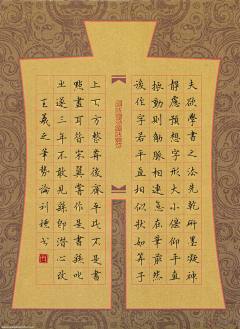 夫欲學書之法先乾研墨凝神
靜慮預想字形大小偃仰平直
振動則筋脈相連意在筆前然
後作字若平直相似狀如算子
上下方整前後齊平此不是書
點畫耳昔宋翼嘗作是書繇叱
之遂三年不敢見繇即潛心改
王羲之筆勢論